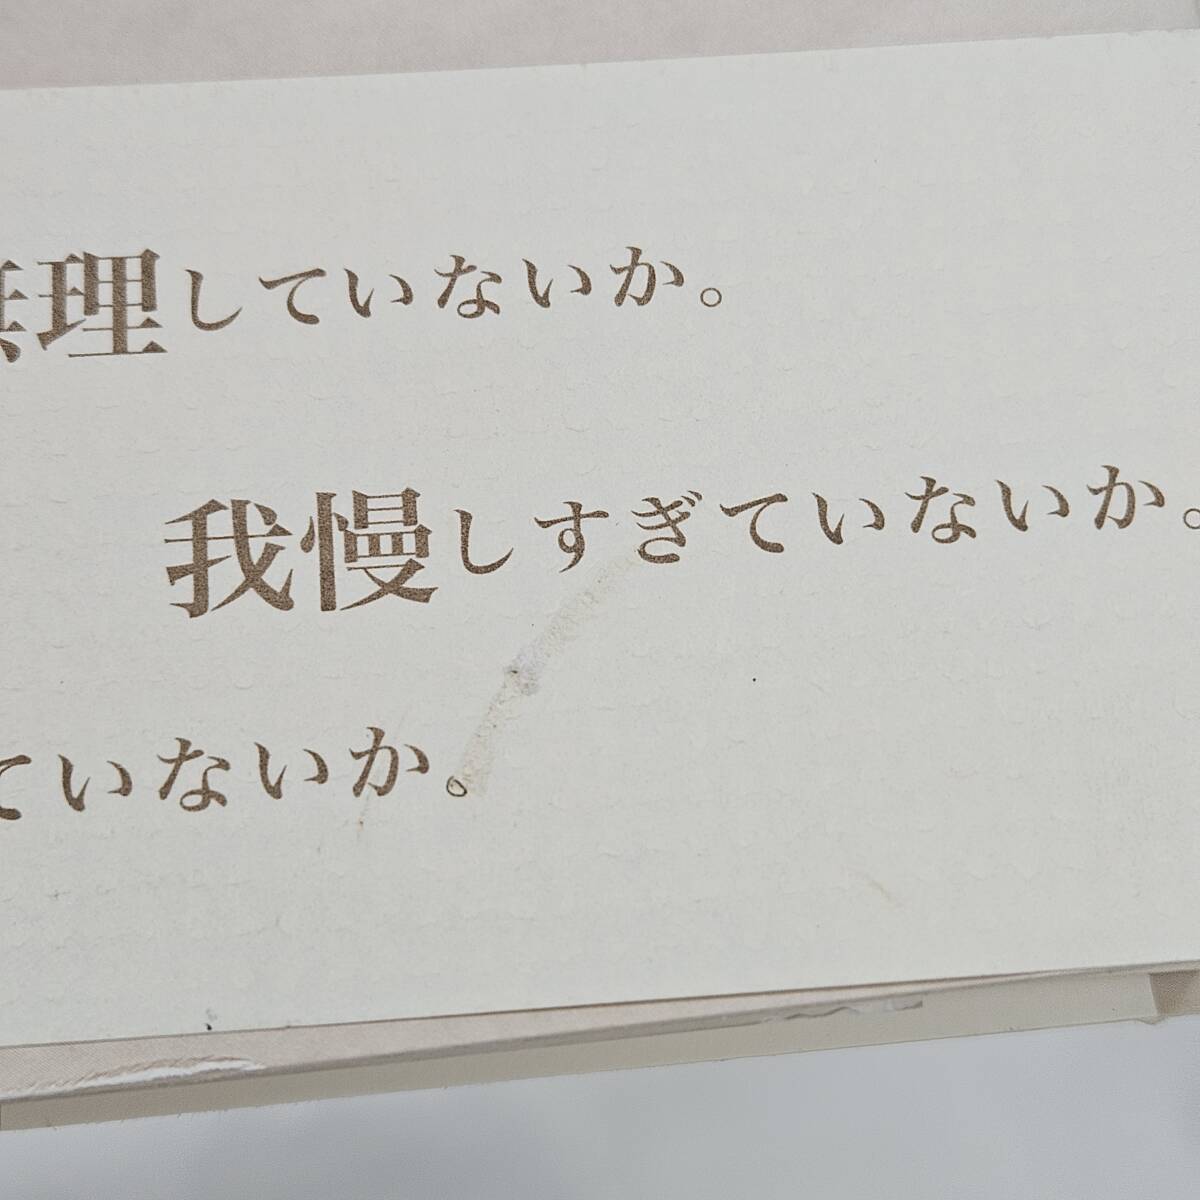 無理していないか。
我慢しすぎていないか。
ていないか。